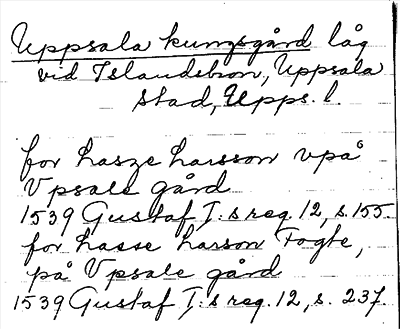 Uppsala kungsgård låg
vid Islandsbron, Uppsala
stad, Upps. l.
for hasze hansson vpå
Vpsale gård
1539 Gustaf I:s reg. 12, s. 155.
for hasse hanson Fogte,
på Vpsale gård
1539 Gustaf I:s reg. 12, s. 237.